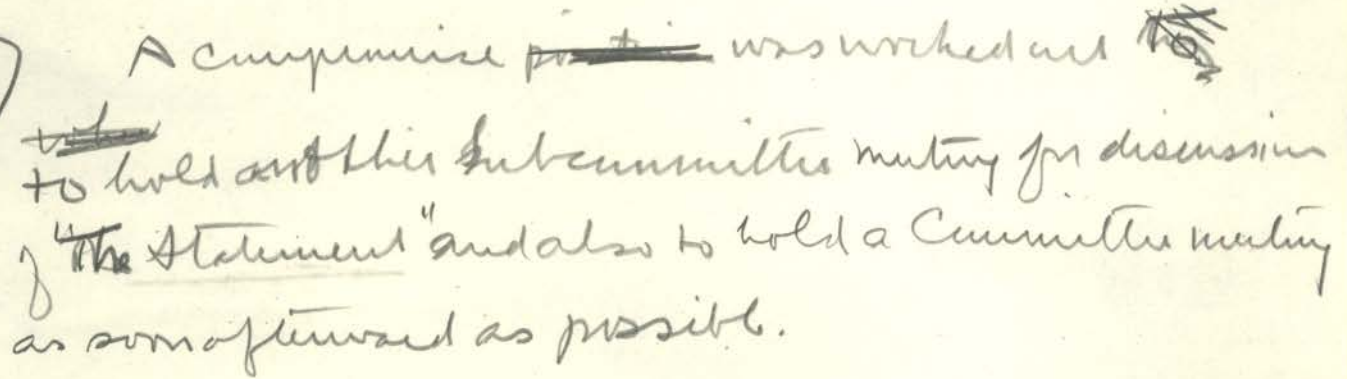 A compromise was worked out
to hold another Subcommittee meeting for discussion
of "The Statement" and also to hold a Committee meeting
as soon afterward as possible.